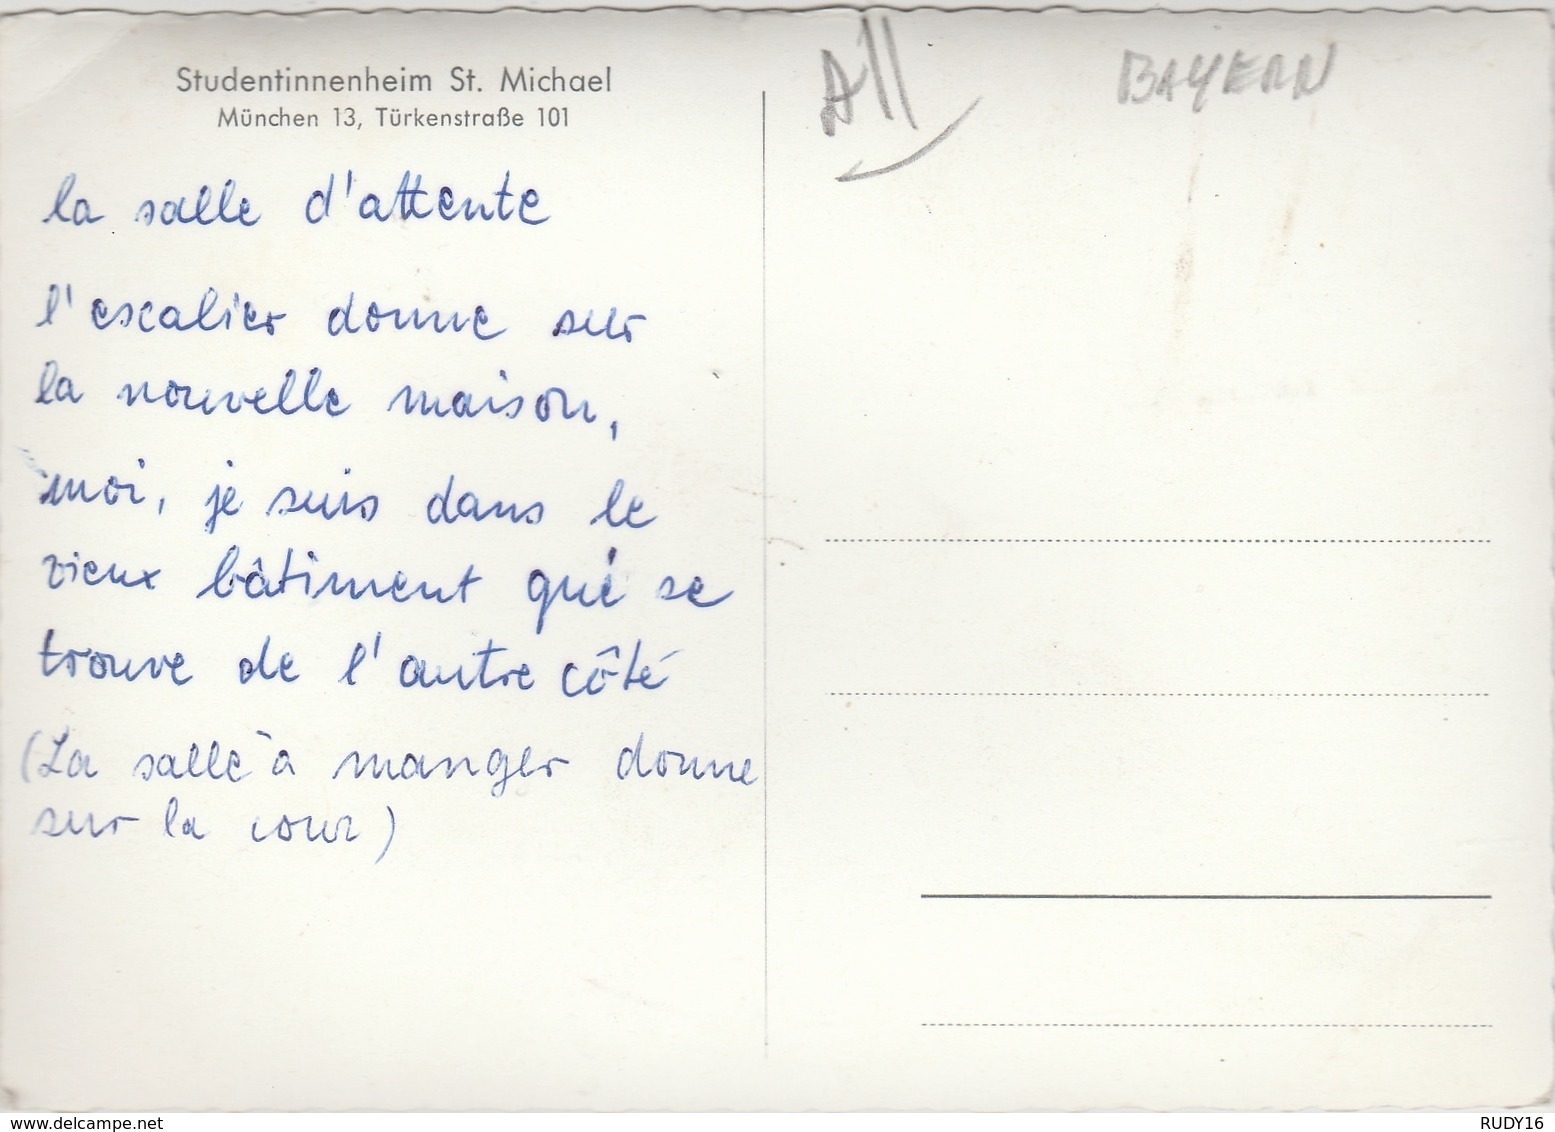 Studentinnenheim St. Michael
München 13, Türkenstraße 101
la salle d'attente
l'escalier donne sur
la nouvelle maison,
moi, je suis dans le
vieux bâtiment qui se
trouve de l'autre côté
(La salle à manger donne
sur la cour)
All
BAYERN
delcampe.net
RUDY16